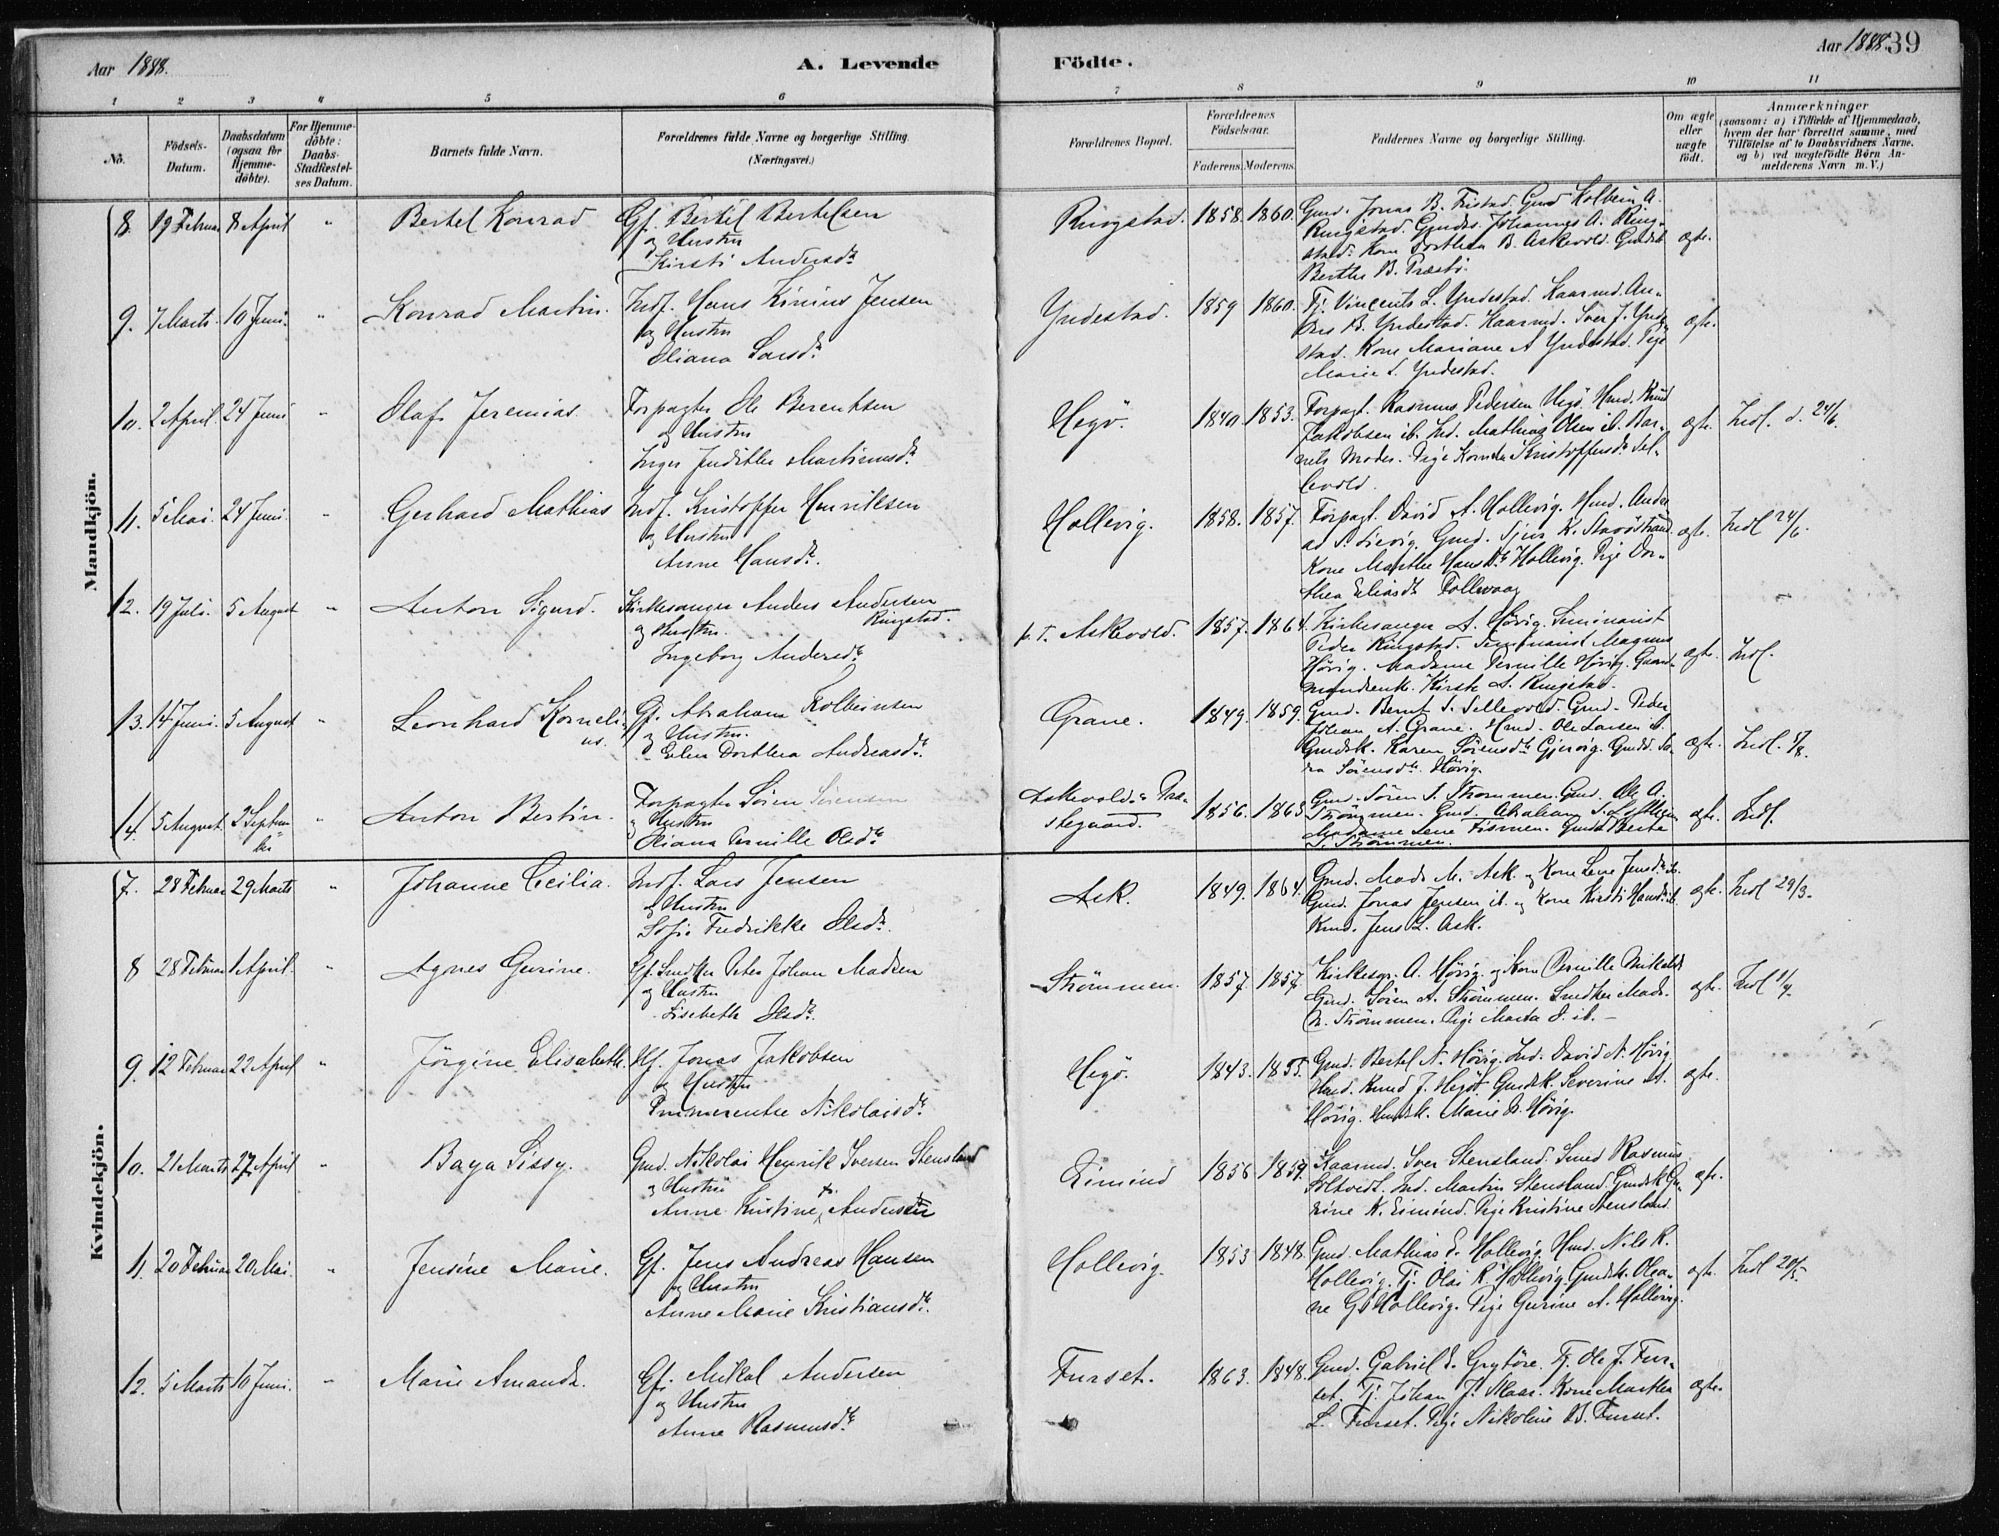 Aar 1888.
A. Levende
Födte.
Aar 1888. 39
1 2 3 4 5 6 7 8 9 10 11
No.
Födsels-
Datum.
Daabsdatum
(ogsaa for
Hjemme-
döbte).
For Hjemme-
döbte:
Daabs-
Stadfæstel-
ses Datum.
Barnets fulde Navn.
Forældrenes fulde Navne og borgerlige Stilling.
(Næringsvei.)
Forældrenes Bopæl.
Forældrenes
Födselsaar.
Faderens. Moderens.
Faddernes Navne og borgerlige Stilling.
Om ægte
eller
uægte
födt.
Anmærkninger
(saasom: a) i Tilfælde af Hjemmedaab,
hvem der har forrettet samme, med
Tilföielse af to Daabsvidners Navne,
og b) ved uægtefödte Börn An-
melderens Navn m. V.)
Mandkjön.
8. 19 Februar 8 April " Bertel Konrad Gf. Bertel Bertelsen
og Hustru
Kirsti Andersdtr
Ringstad. 1858. 1860.
Gmd. Jonas B. Fristad. Gmd Kolbein A.
Ringstad. Gmds. Johannes A. Ring-
stad. Kone Dorthea B. Askevold. Gmdsk
Berthe B. Præstö.
ægte.
9. 7 Marts. 10 Juni. " Konrad Martin. Indf. Hans Kinius Jensen
og Hustru
Oliana Larsdtr
Yndestad. 1859 1860.
Tj. Vincents L. Yndestad. Kaarmd. An-
ders B. Yndestad. Kaarmd. Iver J. Ynde-
stad. Kone Mariane A Yndestad. Pige
Marie L. Yndestad.
ægte.
10. 2 April. 24 Juni " Olaf Jeremias. Forpagter Ole Berentsen
og Hustru
Inger Judithe Martinusdtr.
Hegö. 1840. 1853.
Forpagt. Rasmus Pedersen Hegö. Hmd. Knud
Jakobsen ib. Ind. Mathias Olsen ib. Bar-
nets Moder. Pige Kornelia Kristoffersdtr Sel-
levold.
ægte. Indl. d. 24/6.
11. 5 Mai. 24 Juni. " Gerhard Mathias Indf. Kristoffer Henriksen
og Hustru
Anne Hansdtr.
Hollevig. 1858. 1857.
Forpagt. David A. Hollevig. Hmd. Andre-
as S. Lievig. Gmd. Sjur K. Stavöstrand.
Kone Marthe Hansdtr Hollevig. Pige Dor-
thea Eliasdtr Tollevaag
ægte. Indl 24/6.
12. 19 Juli. 5 August " Anton Sigurd. Kirkesanger Anders Andersen
Ringstad.
og Hustru.
Ingeborg Andersdtr
p. t. Askevold. 1857. 1864.
Kirkesanger A. Hövig. Seminarist
Peder Ringstad. Seminarist Magnus
Hövig. Madame Pernille Hövig. Gaard-
mandsenk. Kirsti A. Ringstad.
ægte. Indl.
13. 14 Juni. 5 August " Leonhard Korneli-
us.
Gf. Abraham Kolbeinsen
og Hustru.
Elen Dorthea Andreasdtr.
Grane. 1849. 1859.
Gmd. Bernt S. Sellevold. Gmd. Peder
Johan A. Grane. Hmd. Ole Larsen ib.
Gmdsk. Karen Sörensdtr Gjervig. Gmdd. Sa-
ra Sörensdtr. Hövig.
ægte. Indl. 5/8.
14. 5 August. 2 Septem-
ber " Anton Bertin. Forpagter Sören Sörensen
og Hustru
Oliana Pernille Olsdtr
Askevolds Præ-
stegaard. 1856. 1863
Gmd. Sören S. Strömmen. Gmd. Ole A.
Strömmen. Gmd. Abraham
Madame Lene Fismen. Gmdd Berte
S. Strömmen.
ægte. Indl.
Kvindekjön.
7. 28 Februar 29 Marts " Johanne Cecilia. Indf. Lars Jensen
og Hustru
Sofie Fredrikke Olsdtr.
Ask. 1849. 1864.
Gmd. Mads M. Ask og Kone Lene Jensdtr ib.
Gmd. Jonas Jensen ib. og Kone Kirsti Hansdtr ib.
Kmd. Jens L. Ask.
ægte. Indl 29/3.
8 28 Februar 1 April. " Agnes Gurine. Gf. Smdker Peter Johan Madsen
og Hustru
Lisebeth Olsdtr.
Strömmen. 1857. 1857.
Kirkesgr. A. Hövig. og Kone Pernille Mikelsdtr
Gmd. Sören A. Strömmen. Smdker Mads.
N. Strömmen. Pige Marta O. ib.
ægte. Indl 1/4.
9. 12 Februar 22 April " Jörgine Elisabeth. Hf. Jonas Jakobsen
og Hustru
Emmerentse Nikolaisdtr.
Hegö. 1843. 1855.
Gmd. Bertel N. Hövig. Ind. David N. Hövig
Hmd. Knud J. Hegö. Gmdsk. Severine A.
Hövig. Hmdsk. Marie D. Hövig.
ægte.
10. 21 Marts 27 April " Baya Sissy. Gmd. Nikolai Henrik Iversen Stensland
og Hustru
Anne Kristine Andersdtr
Eimind 1856 1859.
Kaarmd. Iver Stensland. Smed Rasmus
Soltvedt. Ind. Martin Stensland. Gmdsk Gu-
rine K. Eimind. Pige Kristine Stensland.
ægte.
11. 20 Februar 20 Mai. " Jensine Marie. Gf. Jens Andreas Hansen
og Hustru
Anne Marie Kristiansdtr.
Hollevig. 1853 1848.
Gmd. Mathias E. Hollevig. Hmd. Nils R.
Hollevig. Tj. Olai R. Hollevig. Gmdsk. Olea-
ne G. Hollevig. Pige Gurine A. Hollevig.
ægte. Indl 20/5.
12. 5 Marts 10 Juni. " Marie Amanda. Gf. Mikal Andersen
og Hustru
Anne Rasmusdtr
Furset. 1863. 1848.
Gmd. Gabriel E. Grytöre. Tj. Ole J. Fur-
set. Tj. Johan J. Klaar. Kone Marthea
L. Furset. Pige Nikoline B. Furset.
ægte.